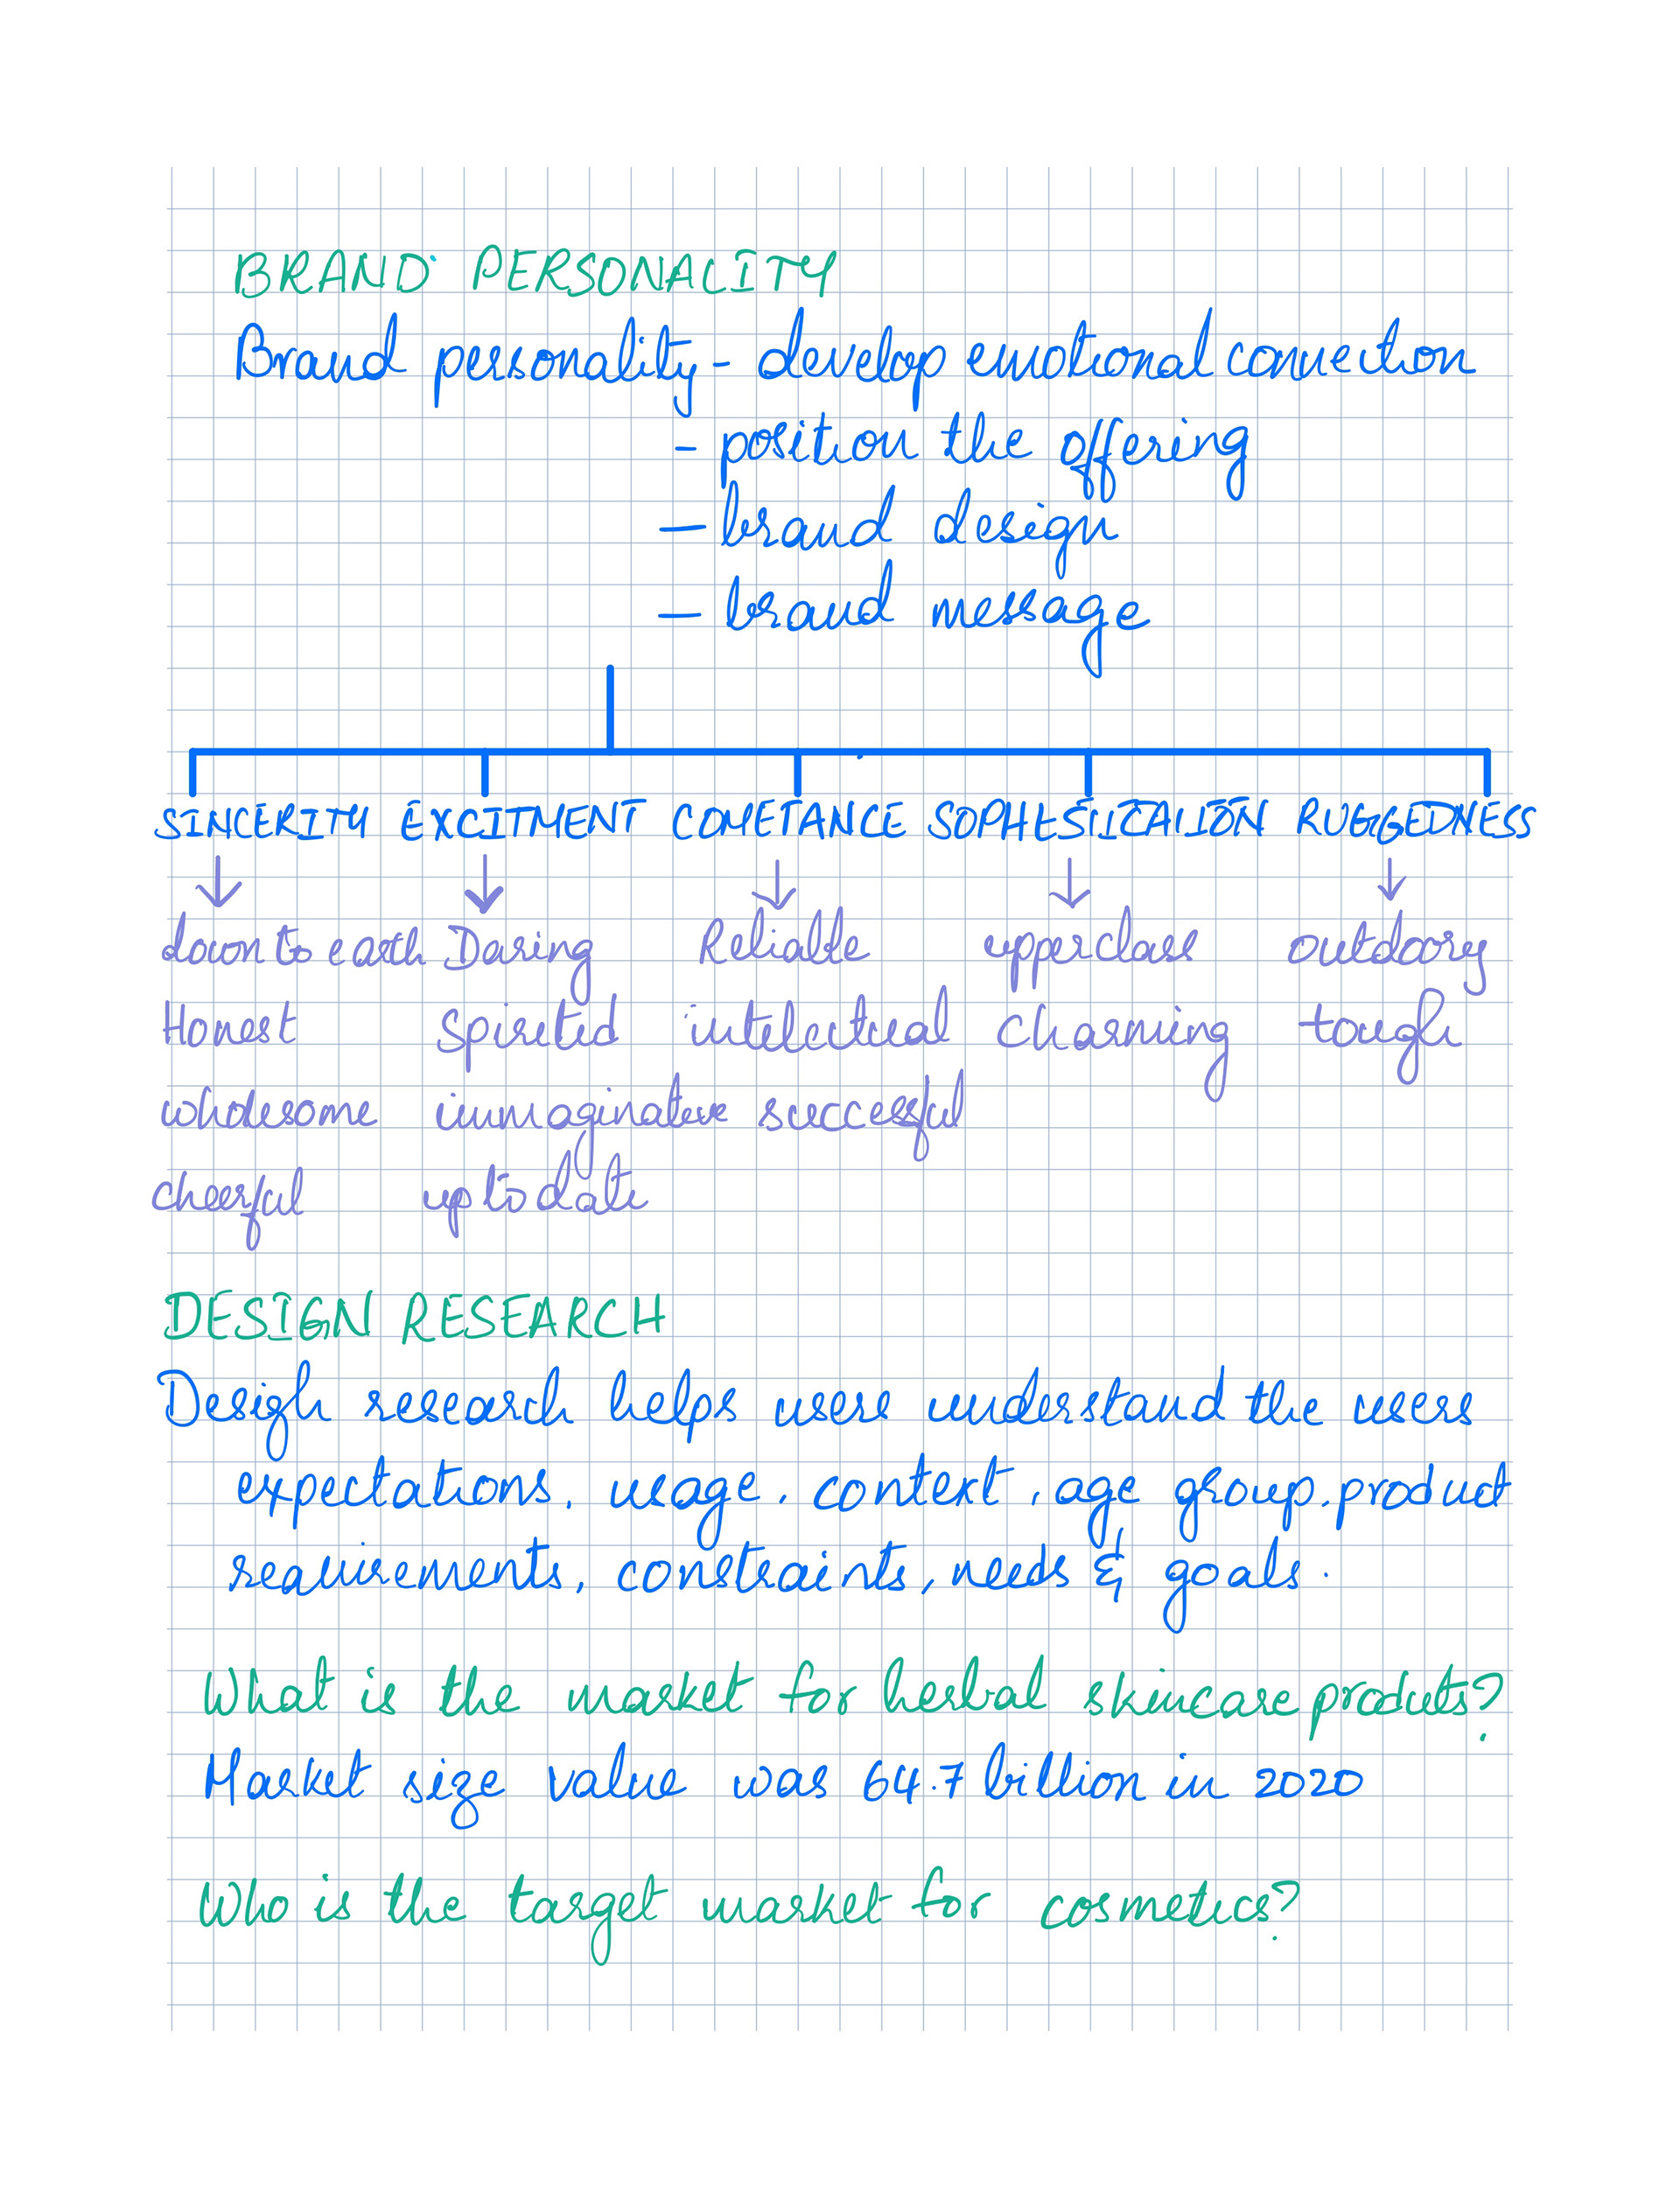 BRAND PERSONALITY
Brand personality - develop emotional connection
- position the offering
- brand design
- brand message
SINCERITY EXCITMENT COMETANCE SOPHISTICATION RUGGEDNESS
down to earth Daring Reliable upperclass outdoory
Honest Spirited intelectual Charming tough
wholesome immaginative successful
cheerful up to date
DESIGN RESEARCH
Desigh research helps users understand the users
expectations, usage, context, age group, product
reauirements, constraints, needs & goals.
What is the market for herbal skincare products?
Market size value was 64.7 billion in 2020
Who is the target market for cosmetics?